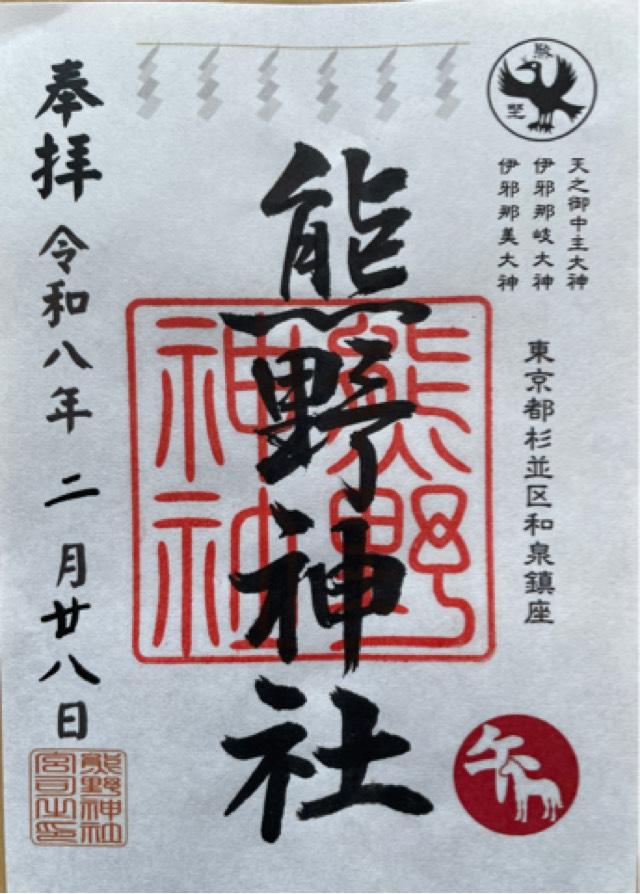 熊
野
天之御中主大神
伊邪那岐大神
伊邪那美大神
東京都杉並区和泉鎮座
熊野神社
熊野
神社
午
奉拝 令和八年 二月廿八日
熊野神社
宮司之印